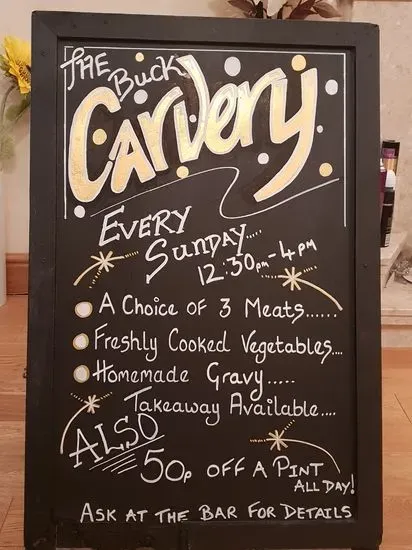 THE Buck
Carvery
EVERY
SUNDAY.....
12:30pm - 4pm
A Choice of 3 Meats......
Freshly Cooked Vegetables....
Homemade Gravy.....
Takeaway Available....
ALSO
50p OFF A PINT
ALL DAY!
ASK AT THE BAR FOR DETAILS